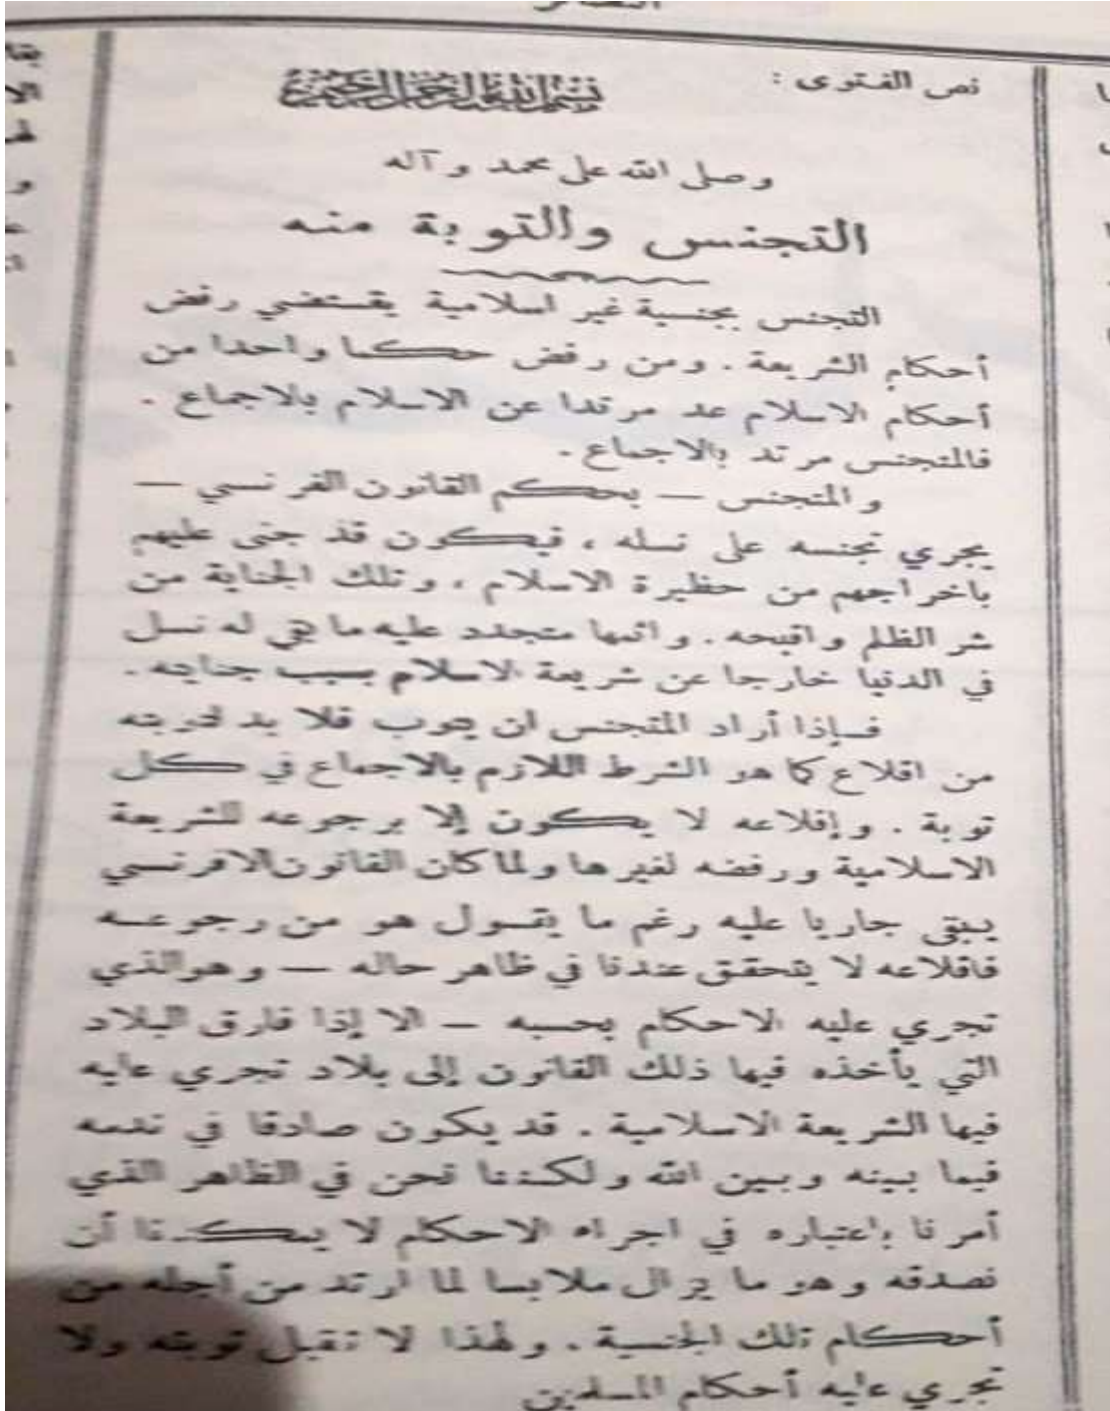 نص الفتوى :
بسم الله الرحمن الرحيم
وصلى الله على محمد وآله
التجنس والتوبة منه
التجنس بجنسية غير اسلامية يقتضي رفض
أحكام الشريعة . ومن رفض حكما واحدا من
أحكام الاسلام عد مرتدا عن الاسلام بالاجماع .
فالمتجنس مرتد بالاجماع .
و المتجنس — بحكم القانون الفرنسي —
يجري تجنسه على نسله ، فيكون قد جنى عليهم
باخراجهم من حظيرة الاسلام ، وتلك الجناية من
شر الظلم واقبحه . واثمها متجدد عليه ما بقي له نسل
في الدنيا خارجا عن شريعة الاسلام بسبب جنايته .
فإذا أراد المتجنس ان يتوب فلا بد لتوبته
من اقلاع كما هو الشرط اللازم بالاجماع في كل
توبة . وإقلاعه لا يكون إلا برجوعه للشريعة
الاسلامية ورفضه لغيرها ولما كان القانون الافرنسي
يبقى جاريا عليه رغم ما يقول هو من رجوعه
فاقلاعه لا يتحقق عندنا في ظاهر حاله — وهو الذي
تجري عليه الاحكام بحسبه — الا إذا فارق البلاد
التي يأخذه فيها ذلك القانون إلى بلاد تجري عليه
فيها الشريعة الاسلامية . قد يكون صادقا في ندمه
فيما بينه وبين الله ولكننا نحن في الظاهر الذي
أمرنا باعتباره في اجراء الاحكام لا يمكننا أن
نصدقه وهو ما يزال ملابسا لما ارتد من أجله من
أحكام تلك الجنسية . ولهذا لا تقبل توبته ولا
تجري عليه أحكام المسلمين